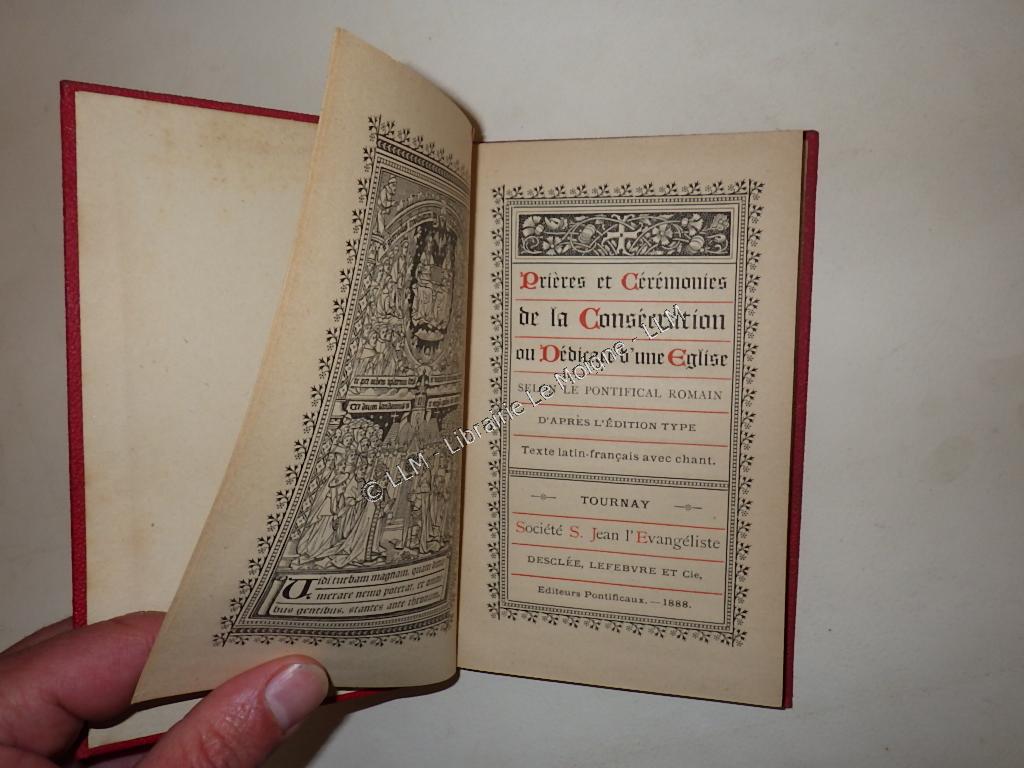 et omnes
Vidi turbam magnam, quam dinu
merare nemo poterat, ex omni
bus gentibus, stantes ante thronum,
Prières et Cérémonies
de la Consécration
ou Dédicace d'une Eglise
SELON LE PONTIFICAL ROMAIN
D'APRÈS L'ÉDITION TYPE
Texte latin-français avec chant.
TOURNAY
Société S. Jean l'Evangéliste
DESCLÉE, LEFEBVRE ET Cie,
Editeurs Pontificaux. — 1888.
© LLM - Librairie Le Moigne - LLM